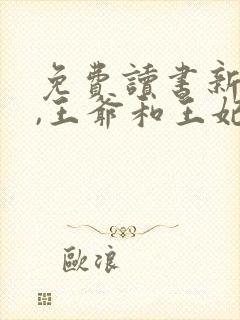 免費讀書新
,王爺和王妃
歐浪